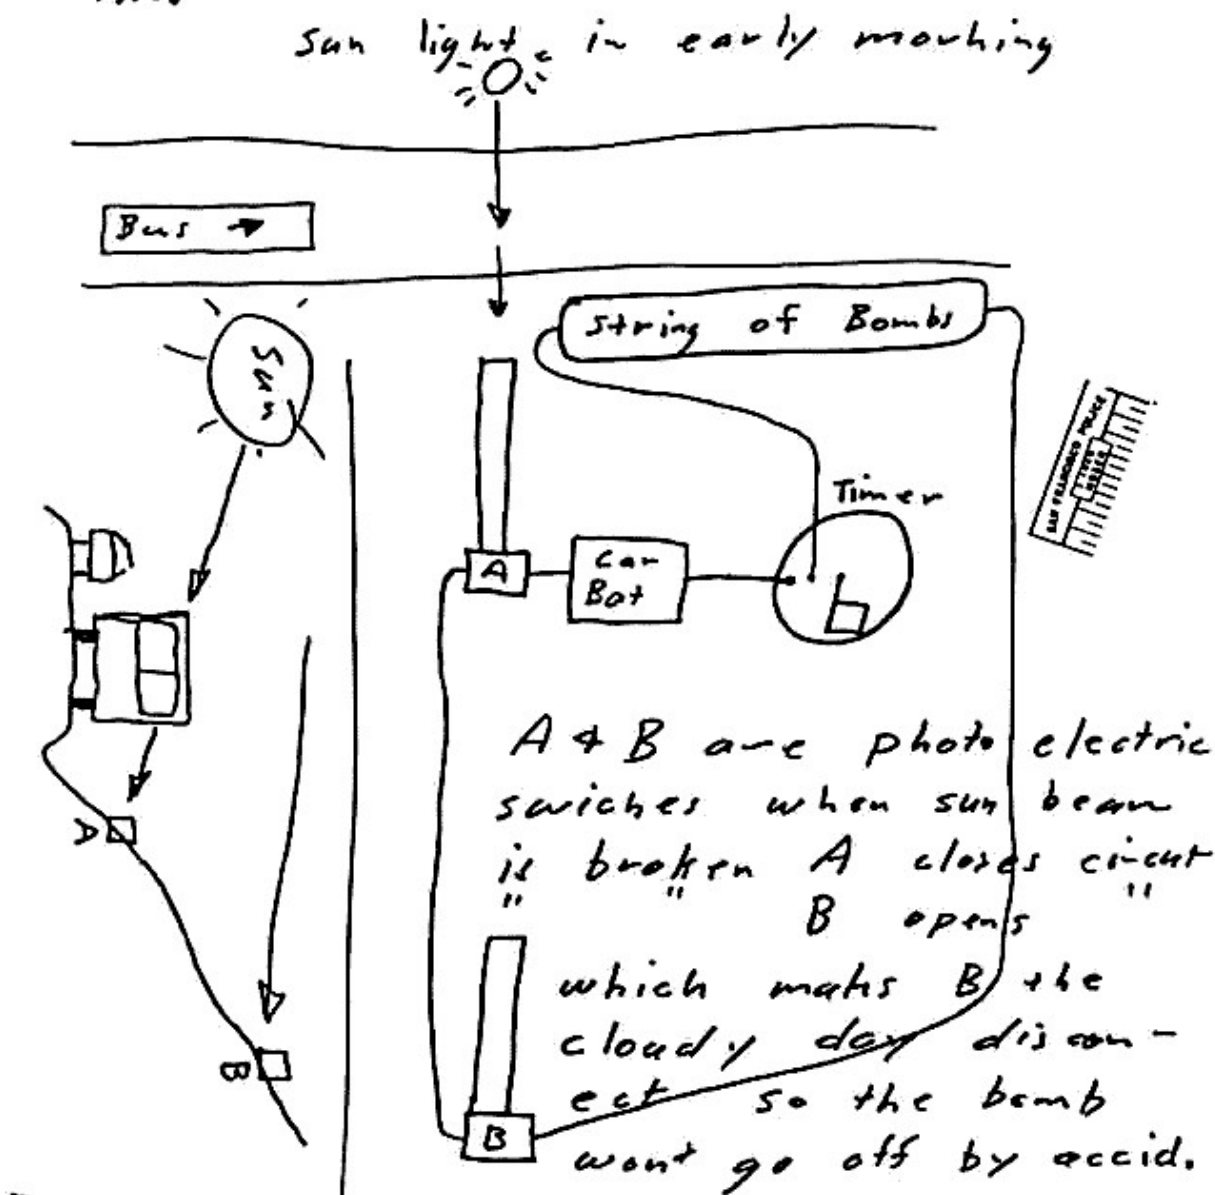 sun light in early morning
Bus
String of Bombs
Sun
SAN FRANCISCO POLICE
Timer
A
Car
Bat
A & B are photo electric
swiches when sun beam
is broken A closes circut
" " B opens "
A
which maks B the
cloudy day discon-
B
ect so the bomb
B
wont go off by accid.